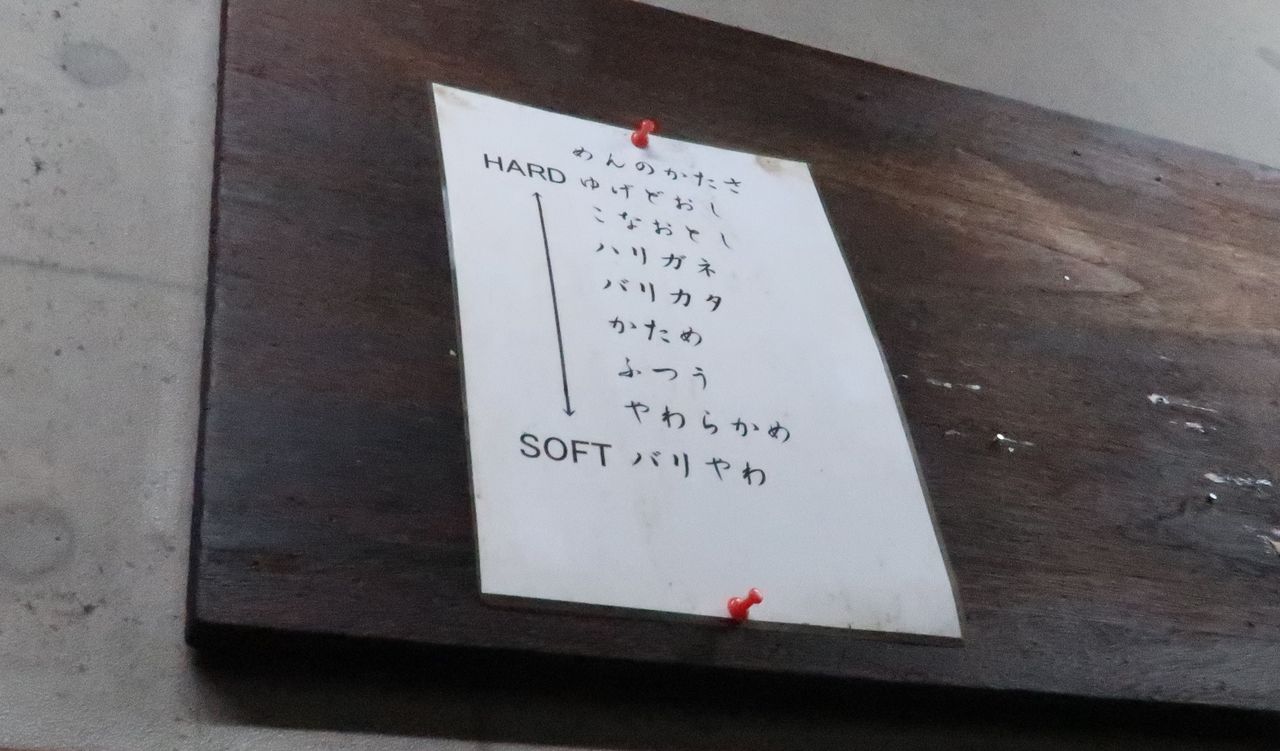 めんのかたさ
HARD ゆげどおし
こなおとし
ハリガネ
バリカタ
かため
ふつう
やわらかめ
SOFT バリやわ